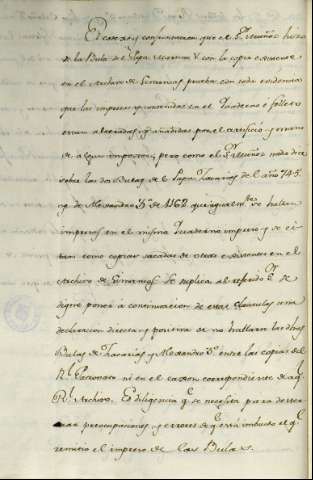 El cotejo y confrontacion que el S.r Muñoz hizo
de la Bula de Papa Eugenio V. con la copia existente
en el Archivo de Simancas prueba con toda evidencia
que las impresas y contenidas en el Quaderno ó folleto
eran alteradas y añadidas por el artificio y
de algun impostor; pero como el S.r Muñoz nada dice
sobre las dos Bulas del Papa Zacarias del año 745.
y de Alexandro 3.º de 1162 que igualm.te se hallan
impresas en el mismo Quaderno impreso y se ci-
tan como copias sacadas de otras existentes en el
Archivo de Simancas Se suplica al referido S.r se
digne poner á continuacion de estas clausulas una
declaracion directa y positiva de no hallarse las dhas
Bulas de Zacarias y Alexandro 3.º entre las copias del
R.l Patronato ni en el caxon correspondiente de aq.l
R.l Archivo. Es diligencia q.e se necesita para dester-
rar preocupaciones y errores de q.e está imbuido el q.e
remitió el impreso de las Bulas.